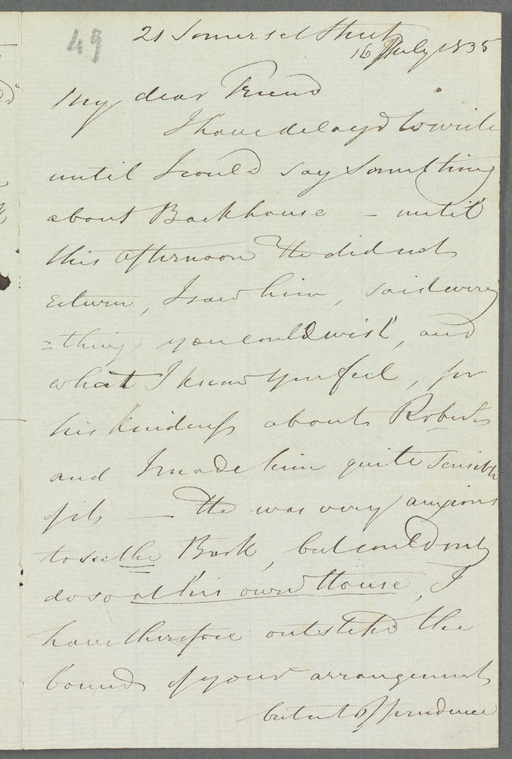 49
21 Somerset Street
16 July 1835
My dear Friend
I have delay'd to write
until I could say something
about Backhouse – until
this afternoon He did not
return, I saw him, said every
=thing you could wish, and
what I know you feel, for
his kindness about Roberts
and I made him quite sensible
of it — He was very anxious
to see the Book, but could not
do so at his own House, I
have therefore outstep'd the
bounds of your arrangements
but not of prudence